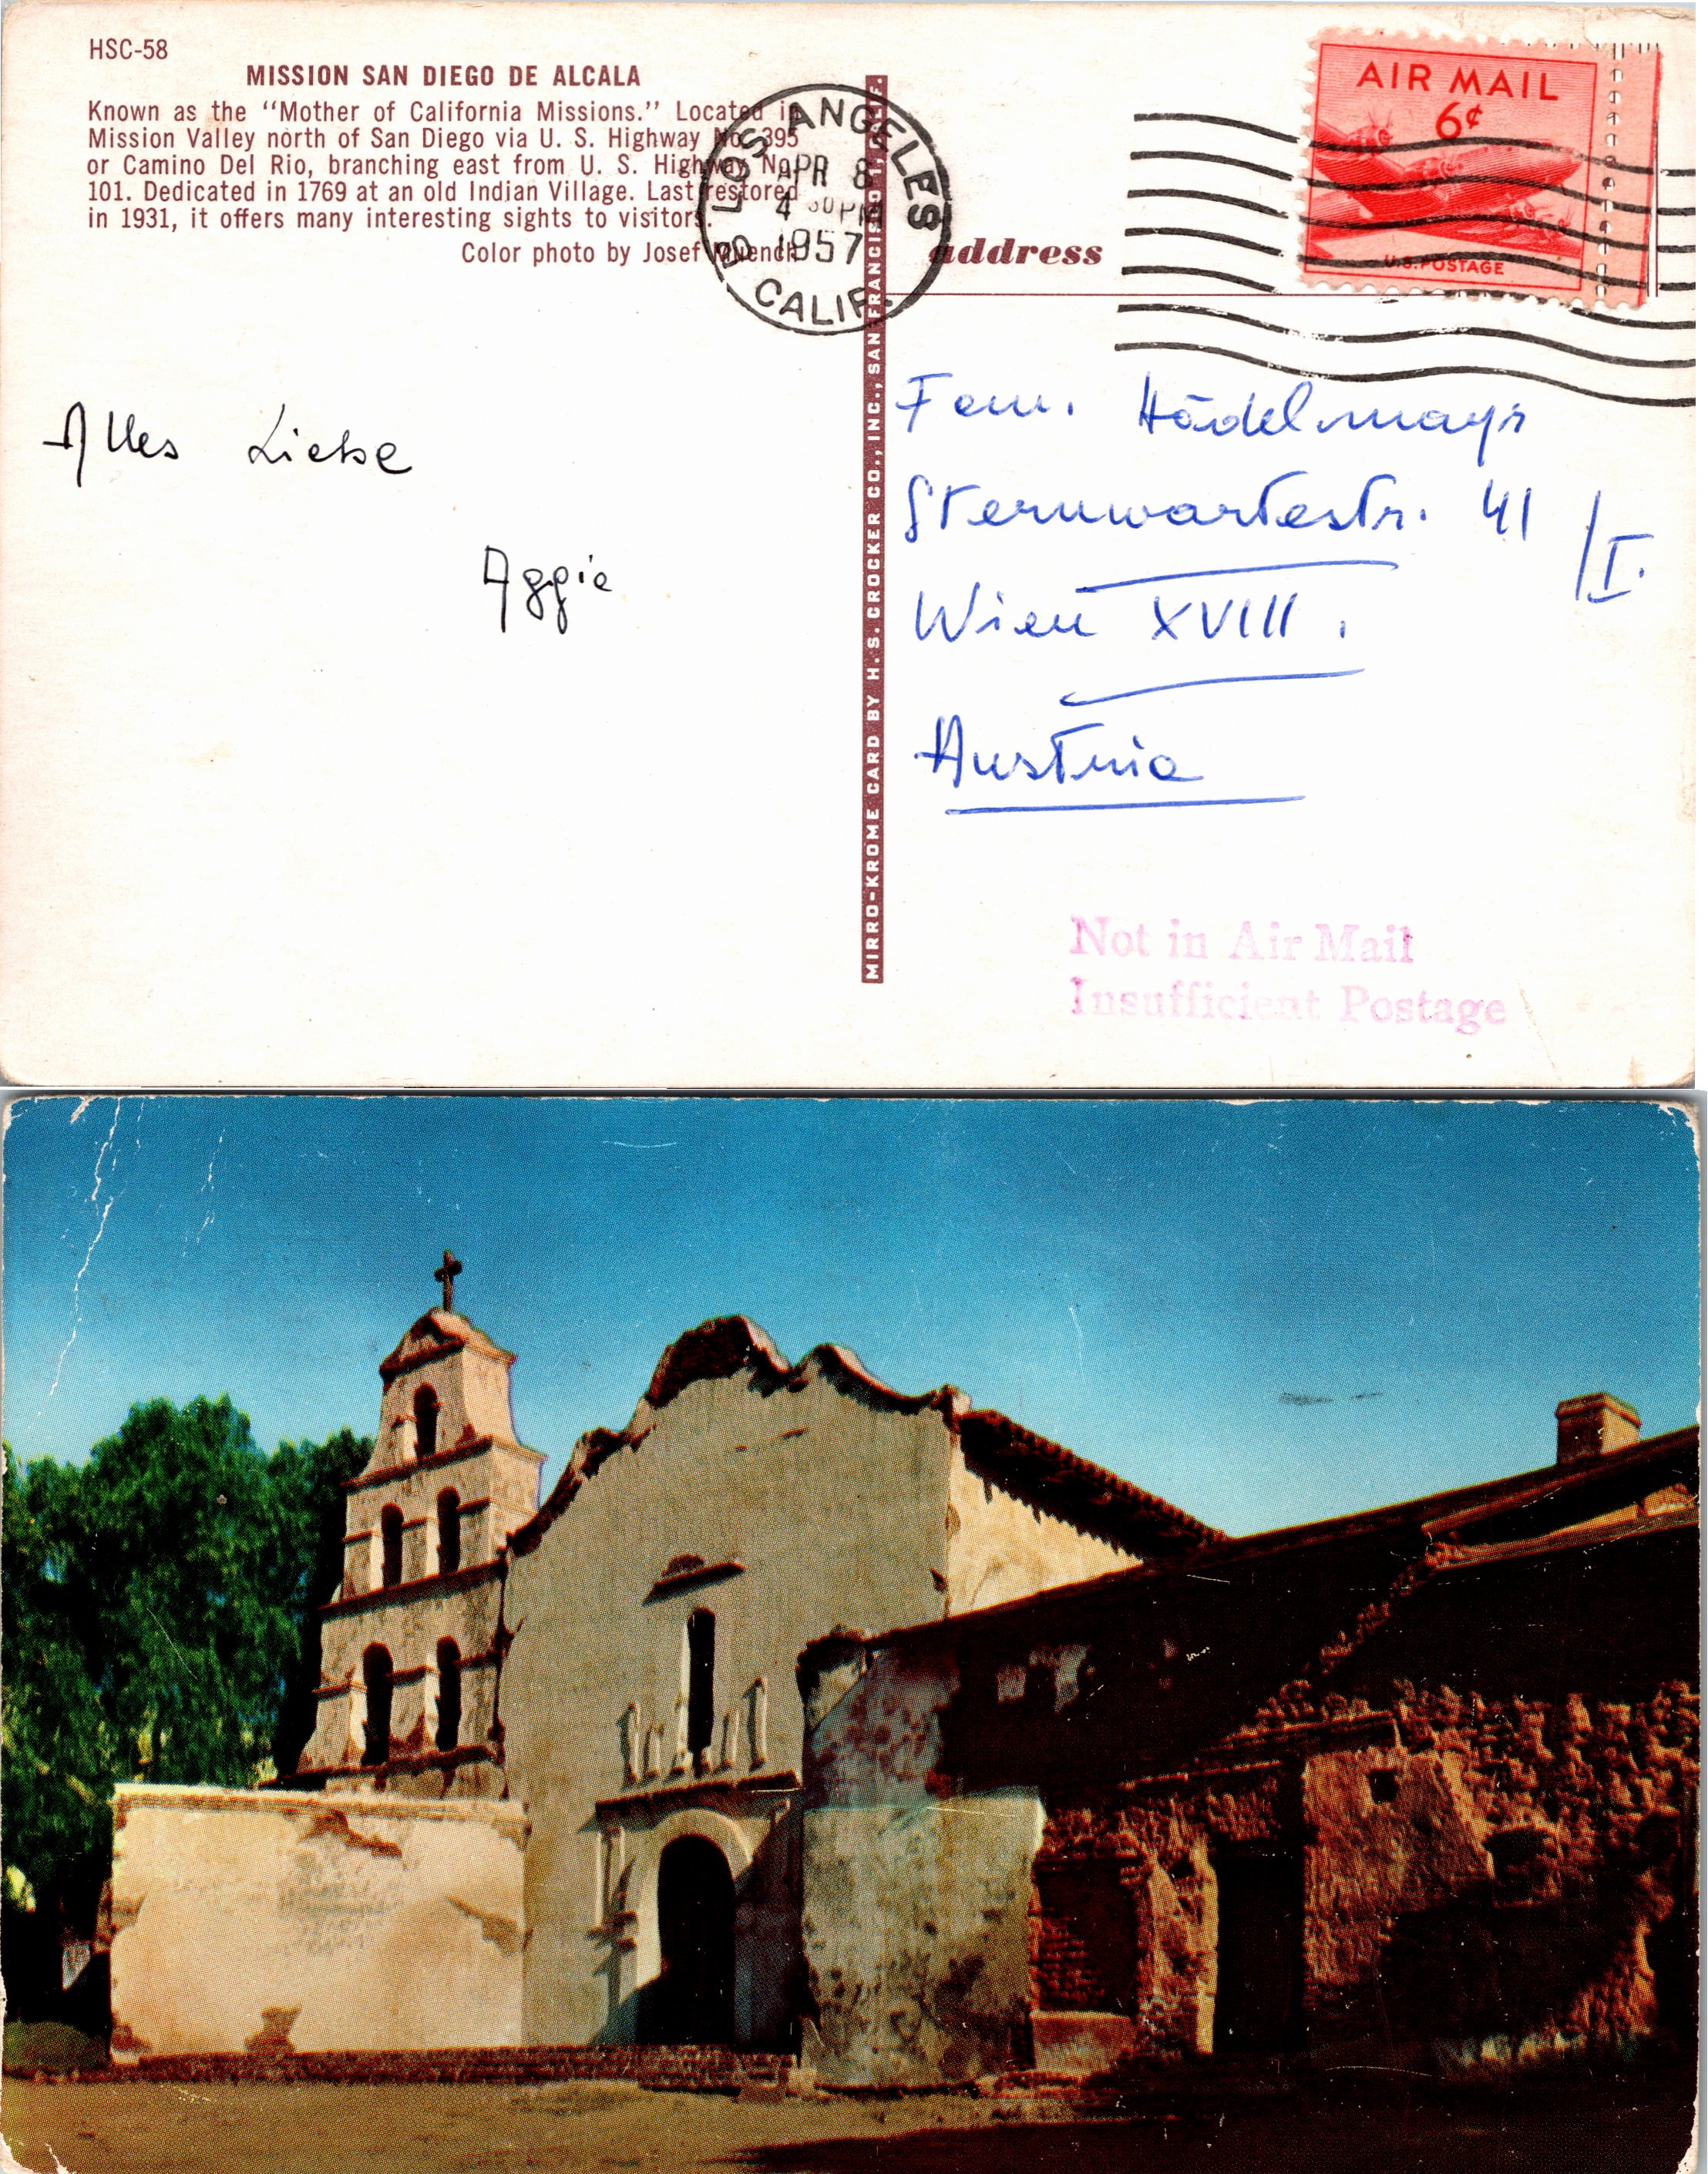 HSC-58
MISSION SAN DIEGO DE ALCALA
Known as the "Mother of California Missions." Located in
Mission Valley north of San Diego via U. S. Highway No. 395
or Camino Del Rio, branching east from U. S. Highway No.
101. Dedicated in 1769 at an old Indian Village. Last restored
in 1931, it offers many interesting sights to visitors.
Color photo by Josef Muench
LOS ANGELES
APR 8
4 30 PM
1957
CALIF.
AIR MAIL
6¢
U.S. POSTAGE
address
MIRRO-KROME CARD BY H.S. CROCKER CO., INC., SAN FRANCISCO 1, CALIF.
Alles Liebe
Aggie
Fam. Hödlmayr
Sternwartestr. 41/I.
Wien XVIII.
Austria
Not in Air Mail
Insufficient Postage